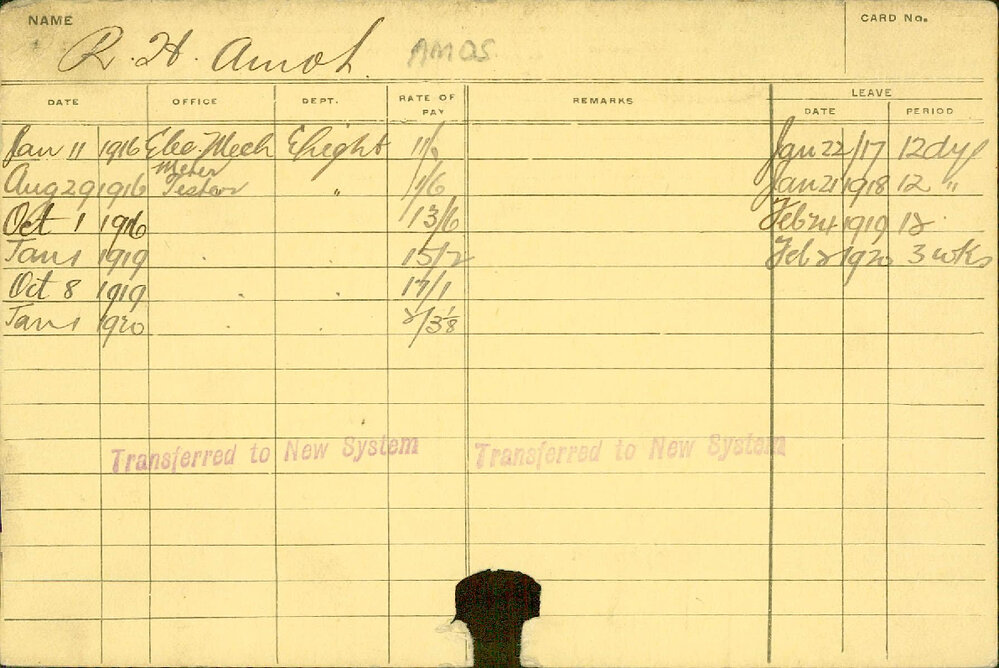 NAME
CARD No.
R. H. Amos. AMOS
LEAVE
DATE OFFICE DEPT. RATE OF PAY REMARKS DATE PERIOD
Jan 11 1916 Elec. Mech Elight 11/- Jan 22/17 12 dys
Aug 29 1916 Meter Tester " 11/6 Jan 21 1918 12 "
Oct 1 1916 13/6 Feb 24 1919 12
Jan 1 1919 15/7 Feb 2 1920 3 wks
Oct 8 1919 17/1
Jan 1 1920 2/3 1/8
Transferred to New System Transferred to New System